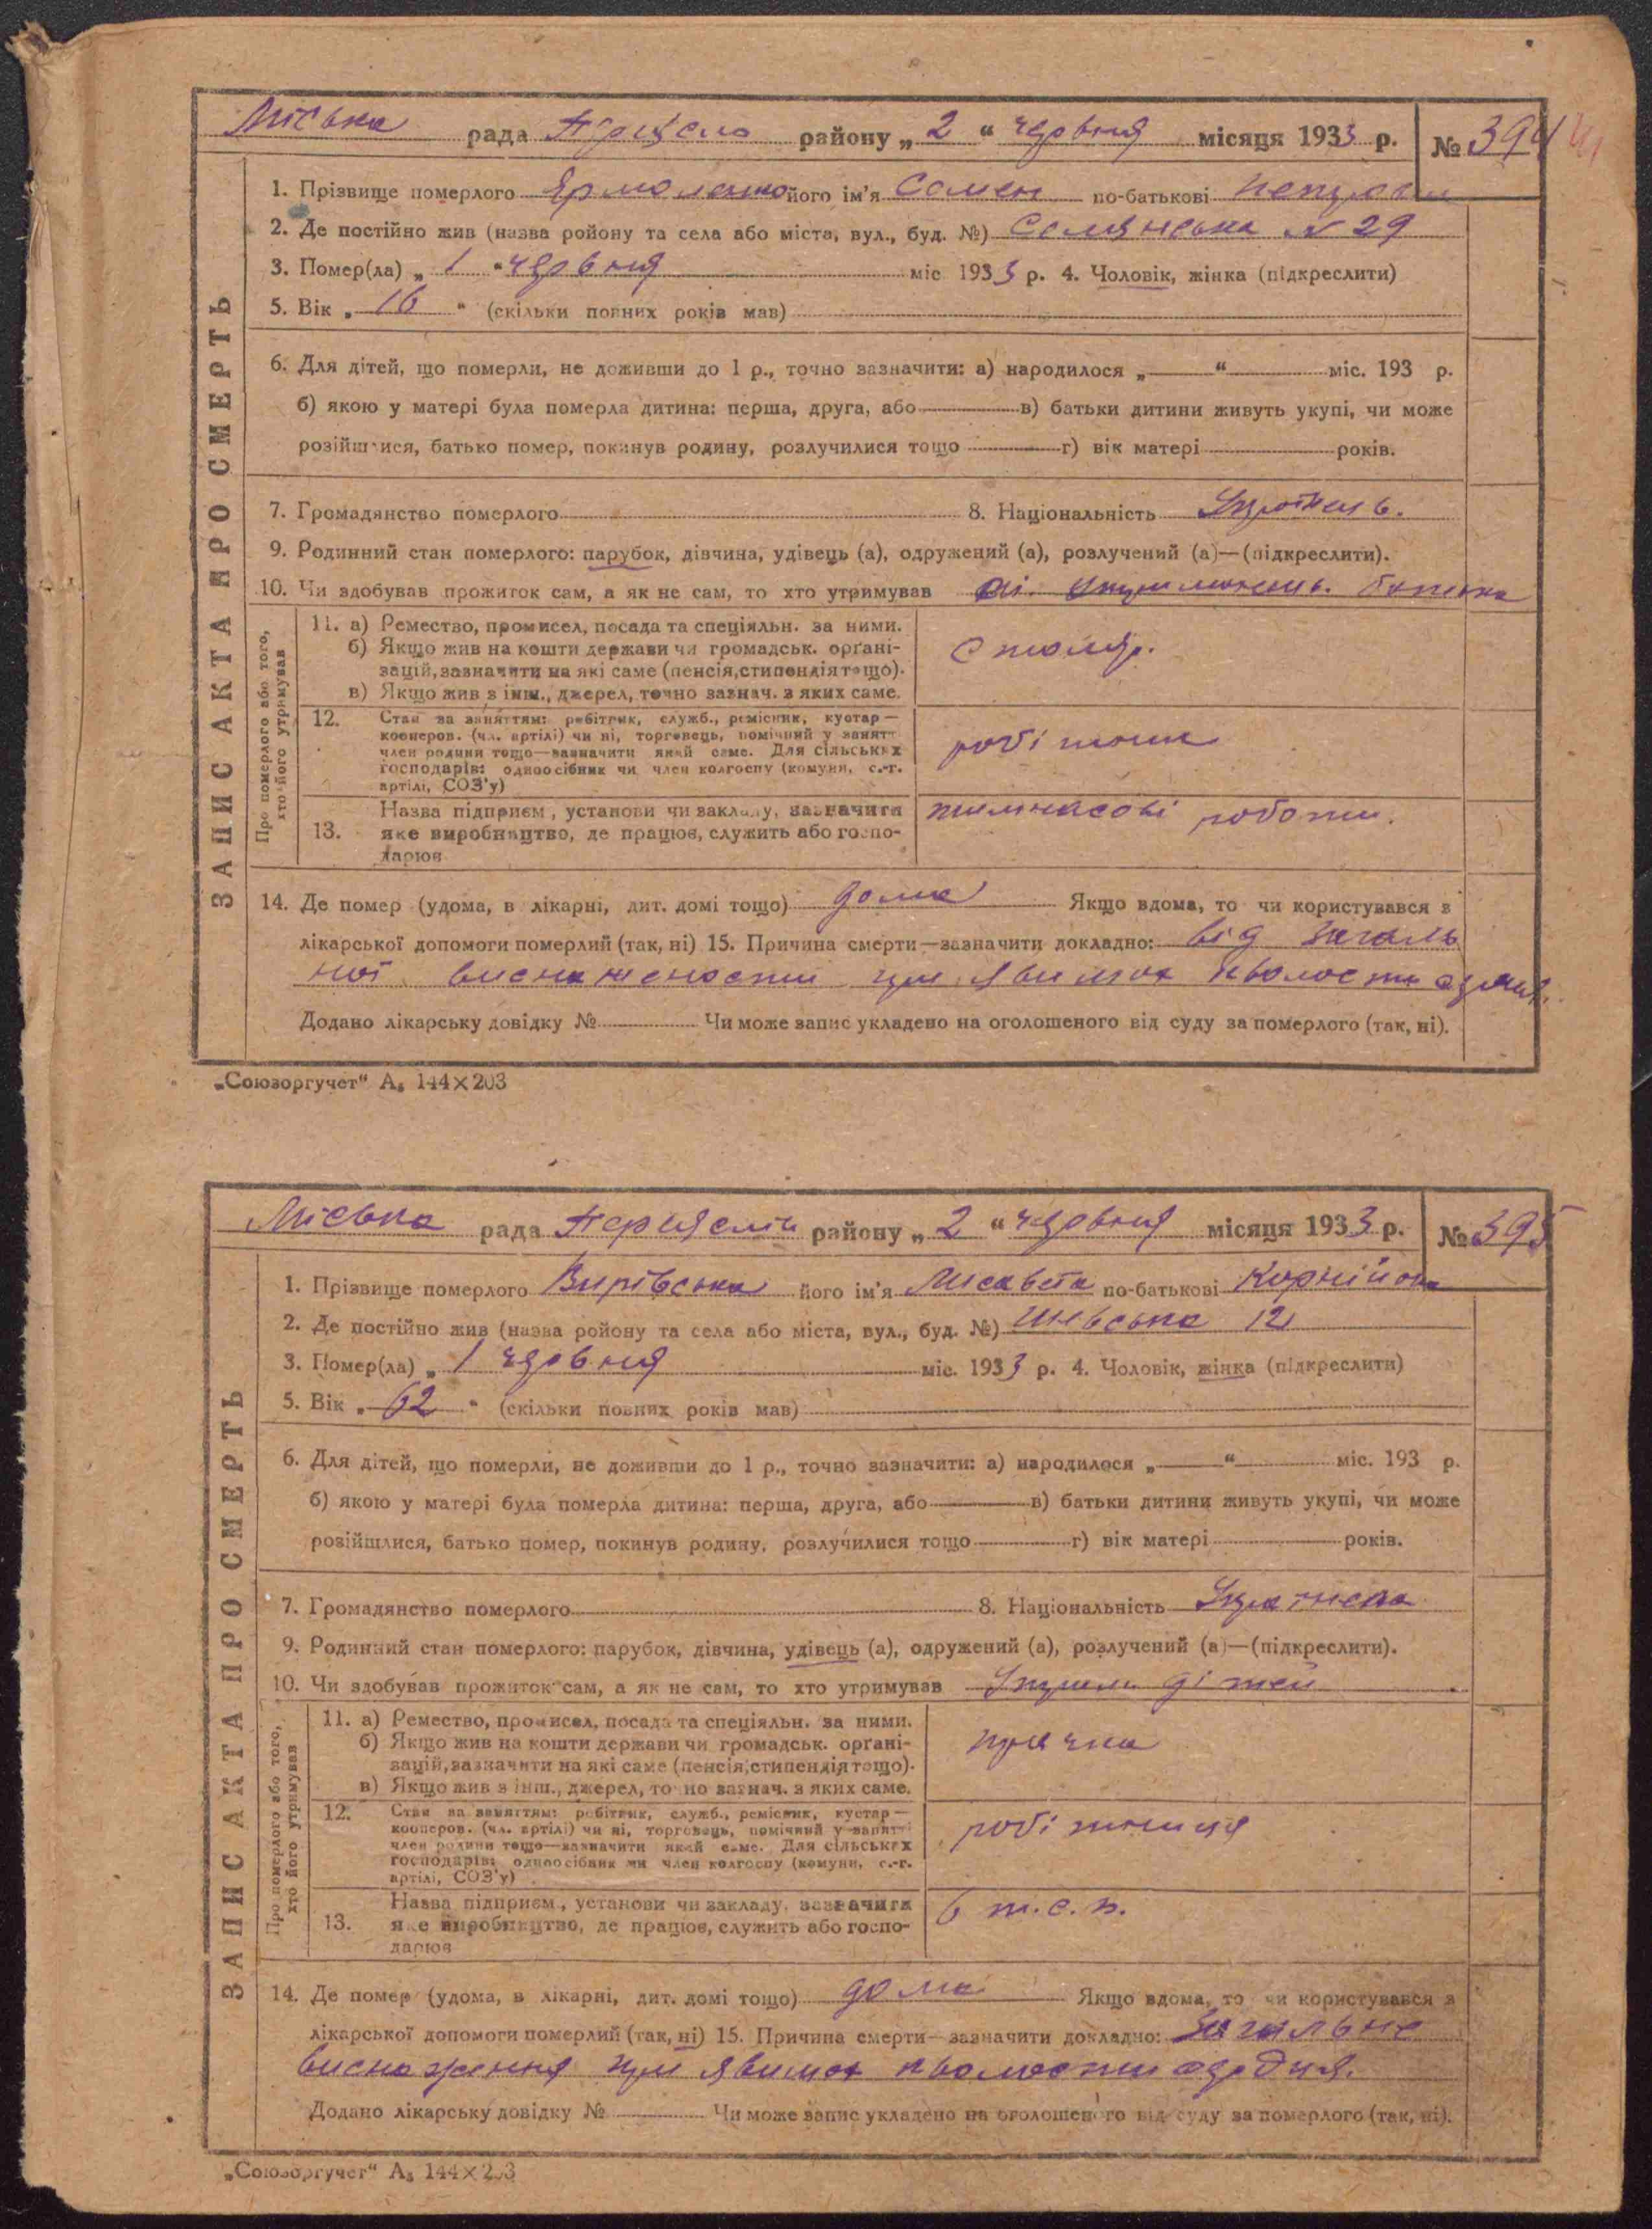 Міська рада Переясло району „ 2 “ червня місяця 1933 р. № 394
ЗАПИС АКТА ПРО СМЕРТЬ
1. Прізвище померлого Ярмоленко його ім'я Семен по-батькові
2. Де постійно жив (назва ройону та села або міста, вул., буд. №) N 29
3. Помер(ла) „ 1 “ червня міс 1933 р. 4. Чоловік, жінка (підкреслити)
5. Вік „ 16 “ (скільки повних років мав)
6. Для дітей, що померли, не доживши до 1 р., точно зазначити: а) народилося „ “ міс. 193 р.
б) якою у матері була померла дитина: перша, друга, або в) батьки дитини живуть укупі, чи може
розійшлися, батько помер, покинув родину, розлучилися тощо г) вік матері років.
7. Громадянство померлого 8. Національність Українець.
9. Родинний стан померлого: парубок, дівчина, удівець (а), одружений (а), розлучений (а)—(підкреслити).
10. Чи здобував прожиток сам, а як не сам, то хто утримував ні. батька
Про померлого або того, хто його утримував
11. а) Ремество, промисел, посада та спеціяльн. за ними.
б) Якщо жив на кошти держави чи громадськ. орґані-
зацій, зазначити на які саме (пенсія, стипендія тощо).
в) Якщо жив з інш., джерел, точно зазнач. з яких саме.
Столяр.
12. Стан за заняттям: робітник, служб., ремісник, кустар—
кооперов. (чл. артілі) чи ні, торговець, помічний у занятт
член родини тощо—зазначити який саме. Для сільських
господарів: одноосібник чи член колгоспу (комуни, с.-г.
артілі, СОЗ'у)
робітник
13. Назва підприєм, установи чи закладу, зазначити
яке виробництво, де працює, служить або госпо-
дарює
тимчасові роботи.
14. Де помер (удома, в лікарні, дит. домі тощо) дома Якщо вдома, то чи користувався з
лікарської допомоги померлий (так, ні) 15. Причина смерти—зазначити докладно: від загаль
ної виснажености при явищах кволости
Додано лікарську довідку № Чи може запис укладено на оголошеного від суду за померлого (так, ні).
„Союзоргучет“ А₅ 144×203
Міська рада Переяслів району „ 2 “ червня місяця 1933 р. № 395
ЗАПИС АКТА ПРО СМЕРТЬ
1. Прізвище померлого Вирівська його ім'я Лисавета по-батькові Корнійовна
2. Де постійно жив (назва ройону та села або міста, вул., буд. №) Шевська 12
3. Помер(ла) „ 1 червня міс. 1933 р. 4. Чоловік, жінка (підкреслити)
5. Вік „ 62 “ (скільки повних років мав)
6. Для дітей, що померли, не доживши до 1 р., точно зазначити: а) народилося „ “ міс. 193 р.
б) якою у матері була померла дитина: перша, друга, або в) батьки дитини живуть укупі, чи може
розійшлися, батько помер, покинув родину, розлучилися тощо г) вік матері років.
7. Громадянство померлого 8. Національність Українська
9. Родинний стан померлого: парубок, дівчина, удівець (а), одружений (а), розлучений (а)—(підкреслити).
10. Чи здобував прожиток сам, а як не сам, то хто утримував Утрим. дітей
Про померлого або того, хто його утримував
11. а) Ремество, промисел, посада та спеціяльн. за ними.
б) Якщо жив на кошти держави чи громадськ. орґані-
зацій, зазначити на які саме (пенсія, стипендія тощо).
в) Якщо жив з інш., джерел, точно зазнач. з яких саме.
прачка
12. Стан за заняттям: робітник, служб., ремісник, кустар—
кооперов. (чл. артілі) чи ні, торговець, помічний у занятті
член родини тощо—зазначити який саме. Для сільських
господарів: одноосібник чи член колгоспу (комуни, с.-г.
артілі, СОЗ'у)
робітниця
13. Назва підприєм., установи чи закладу, зазначити
яке виробництво, де працює, служить або госпо-
дарює
в т.с.п.
14. Де помер (удома, в лікарні, дит. домі тощо) дома Якщо вдома, то чи користувався з
лікарської допомоги померлий (так, ні) 15. Причина смерти—зазначити докладно: загальне
виснаження при явищах кволости сердця.
Додано лікарську довідку № Чи може запис укладено на оголошеного від суду за померлого (так, ні).
„Союзоргучет“ А₅ 144×203